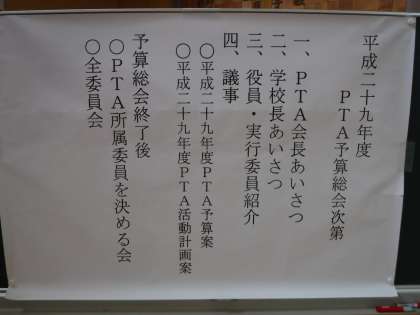 平成二十九年度
ＰＴＡ予算総会次第
一、ＰＴＡ会長あいさつ
二、学校長あいさつ
三、役員・実行委員紹介
四、議事
〇平成二十九年度ＰＴＡ予算案
〇平成二十九年度ＰＴＡ活動計画案
予算総会終了後
〇ＰＴＡ所属委員を決める会
〇全委員会